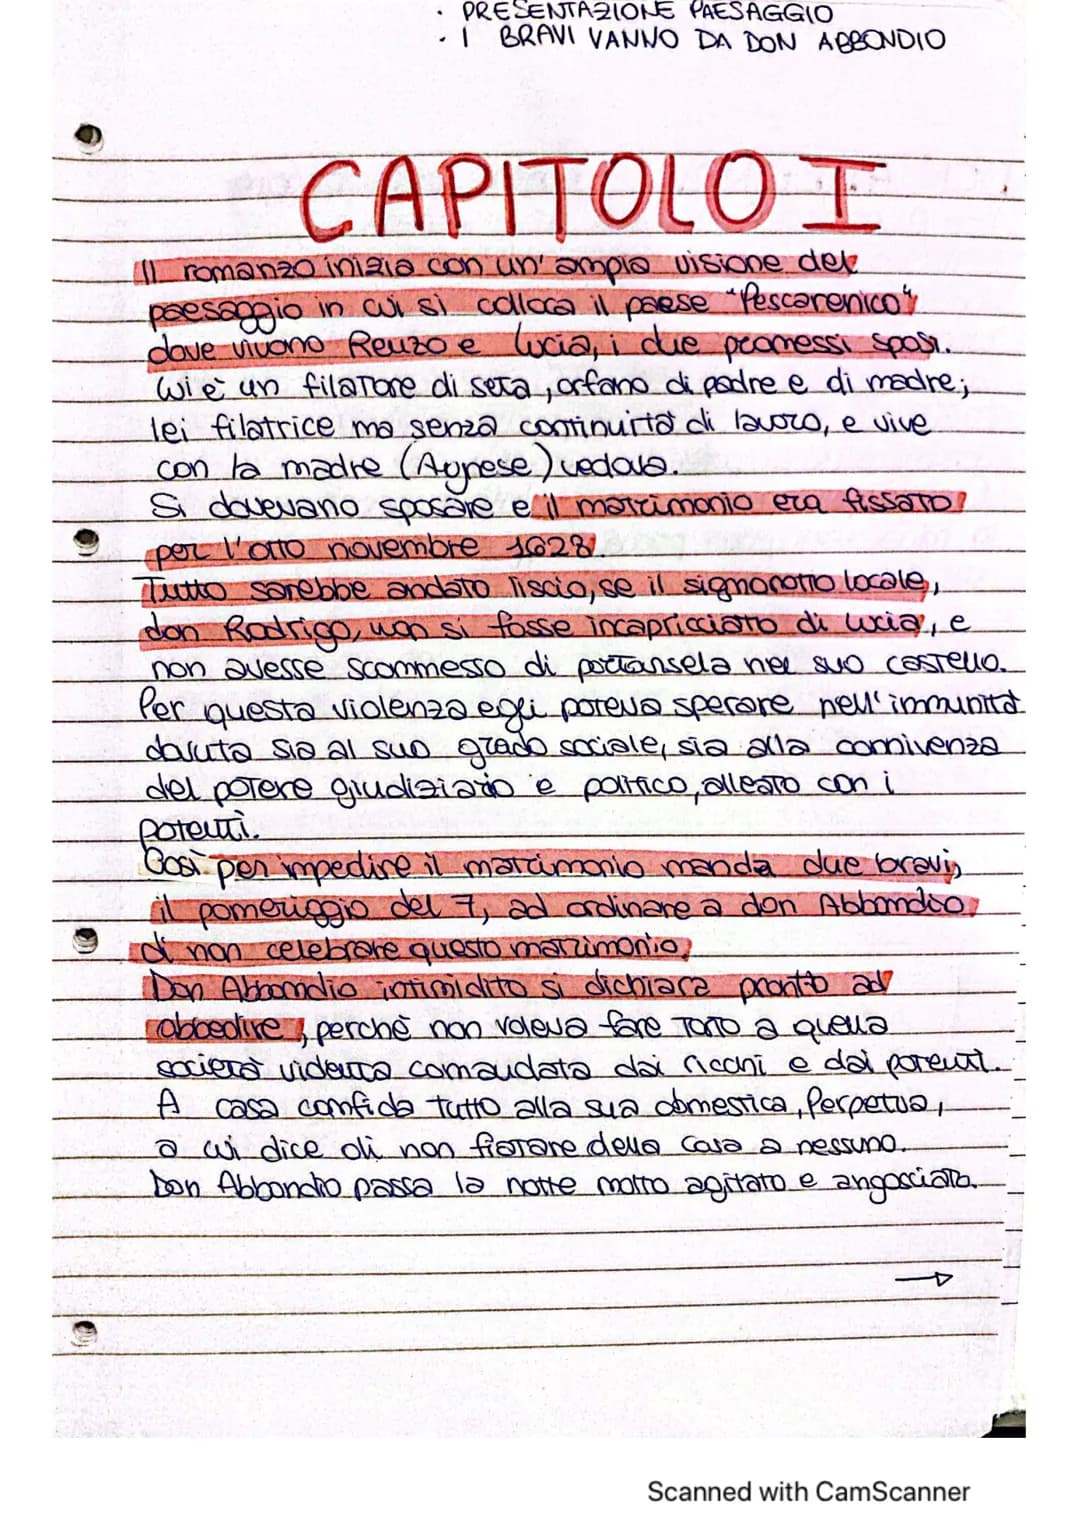 • PRESENTAZIONE PAESAGGIO
• I BRAVI VANNO DA DON ABBONDIO
CAPITOLO I
Il romanzo inizia con un'ampia visione del
paesaggio in cui si colloca il paese "Pescarenico"
dove vivono Renzo e Lucia, i due promessi sposi.
Lui è un filatore di seta, orfano di padre e di madre;
lei filatrice ma senza continuità di lavoro, e vive
con la madre (Agnese) vedova.
Si dovevano sposare e il matrimonio era fissato
per l'otto novembre 1628.
Tutto sarebbe andato liscio, se il signorotto locale,
don Rodrigo, non si fosse incapricciato di Lucia, e
non avesse scommesso di portarsela nel suo castello.
Per questa violenza egli poteva sperare nell'immunità
dovuta sia al suo grado sociale, sia alla connivenza
del potere giudiziario e politico, alleato con i
potenti.
Così per impedire il matrimonio manda due bravi,
il pomeriggio del 7, ad ordinare a don Abbondio
di non celebrare questo matrimonio.
Don Abbondio intimidito si dichiara pronto ad
obbedire, perché non voleva fare torto a quella
società violenta comandata dai ricchi e dai potenti.
A casa confida tutto alla sua domestica, Perpetua,
a cui dice di non fiatare della cosa a nessuno.
Don Abbondio passa la notte molto agitato e angosciato.
→
Scanned with CamScanner